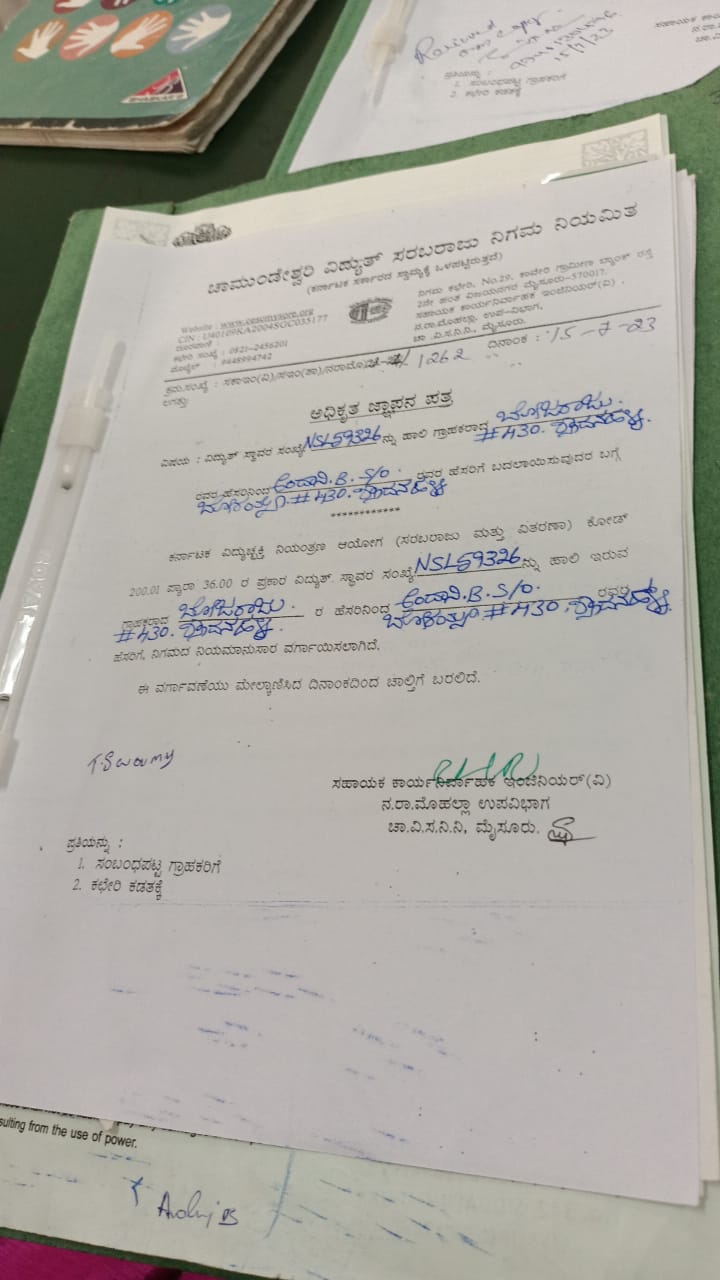 Received
copy
15/7/23
ಪ್ರತಿಯನ್ನು :
1. ಸಂಬಂಧಪಟ್ಟ ಗ್ರಾಹಕರಿಗೆ
2. ಕಛೇರಿ ಕಡತಕ್ಕೆ
ಸಹಾಯಕ ಕಾರ್ಯ
ಚಾಮುಂಡೇಶ್ವರಿ ವಿದ್ಯುತ್ ಸರಬರಾಜು ನಿಗಮ ನಿಯಮಿತ
(ಕರ್ನಾಟಕ ಸರ್ಕಾರದ ಸ್ವಾಮ್ಯಕ್ಕೆ ಒಳಪಟ್ಟಿರುತ್ತದೆ)
Website : www.cescmysore.org
CIN : U40109KA2004SGC035177
ದೂರವಾಣಿ :
ಕಛೇರಿ ಸಂಖ್ಯೆ : 0821-2456201
ಮೊಬೈಲ್ : 9448994742
ನಿಗಮ ಕಛೇರಿ, No.29, ಕಾವೇರಿ ಗ್ರಾಮೀಣ ಬ್ಯಾಂಕ್ ರಸ್ತೆ
2ನೇ ಹಂತ ವಿಜಯನಗರ ಮೈಸೂರು-570017.
ಸಹಾಯಕ ಕಾರ್ಯನಿರ್ವಾಹಕ ಇಂಜಿನಿಯರ್(ವಿ) ,
ನ.ರಾ.ಮೊಹಲ್ಲಾ, ಉಪ-ವಿಭಾಗ,
ಚಾ.ವಿ.ಸ.ನಿ.ನಿ, ಮೈಸೂರು.
ಕ್ರಮ.ಸಂಖ್ಯೆ : ಸಕಾಇಂ(ವಿ)/ಸಇಂ(ತಾ)/ನರಾಮೊ 1262 ದಿನಾಂಕ : 15-7-23
ಲಗತ್ತು:
ಅಧಿಕೃತ ಜ್ಞಾಪನ ಪತ್ರ
ವಿಷಯ : ವಿದ್ಯುತ್ ಸ್ಥಾವರ ಸಂಖ್ಯೆ NSL59326 ನ್ನು ಹಾಲಿ ಗ್ರಾಹಕರಾದ ಬೋಜರಾಜು.
#430.
ರವರ ಹೆಸರಿನಿಂದ B. S/O. ರವರ ಹೆಸರಿಗೆ ಬದಲಾಯಿಸುವುದರ ಬಗ್ಗೆ
#430.
************
ಕರ್ನಾಟಕ ವಿದ್ಯುಚ್ಛಕ್ತಿ ನಿಯಂತ್ರಣ ಆಯೋಗ (ಸರಬರಾಜು ಮತ್ತು ವಿತರಣಾ) ಕೋಡ್
200.01 ಪ್ಯಾರಾ 36.00 ರ ಪ್ರಕಾರ ವಿದ್ಯುತ್ ಸ್ಥಾವರ ಸಂಖ್ಯೆ NSL59326 ನ್ನು ಹಾಲಿ ಇರುವ
ಗ್ರಾಹಕರಾದ ಬೋಜರಾಜು. ರ ಹೆಸರಿನಿಂದ B. S/O. ರವರ
#430. #430.
ಹೆಸರಿಗೆ, ನಿಗಮದ ನಿಯಮಾನುಸಾರ ವರ್ಗಾಯಿಸಲಾಗಿದೆ.
ಈ ವರ್ಗಾವಣೆಯು ಮೇಲ್ಕಾಣಿಸಿದ ದಿನಾಂಕದಿಂದ ಚಾಲ್ತಿಗೆ ಬರಲಿದೆ.
ಸಹಾಯಕ ಕಾರ್ಯನಿರ್ವಾಹಕ ಇಂಜಿನಿಯರ್(ವಿ)
ನ.ರಾ.ಮೊಹಲ್ಲಾ ಉಪವಿಭಾಗ
ಚಾ.ವಿ.ಸ.ನಿ.ನಿ, ಮೈಸೂರು.
ಪ್ರತಿಯನ್ನು :
1. ಸಂಬಂಧಪಟ್ಟ ಗ್ರಾಹಕರಿಗೆ
2. ಕಛೇರಿ ಕಡತಕ್ಕೆ
sulting from the use of power.